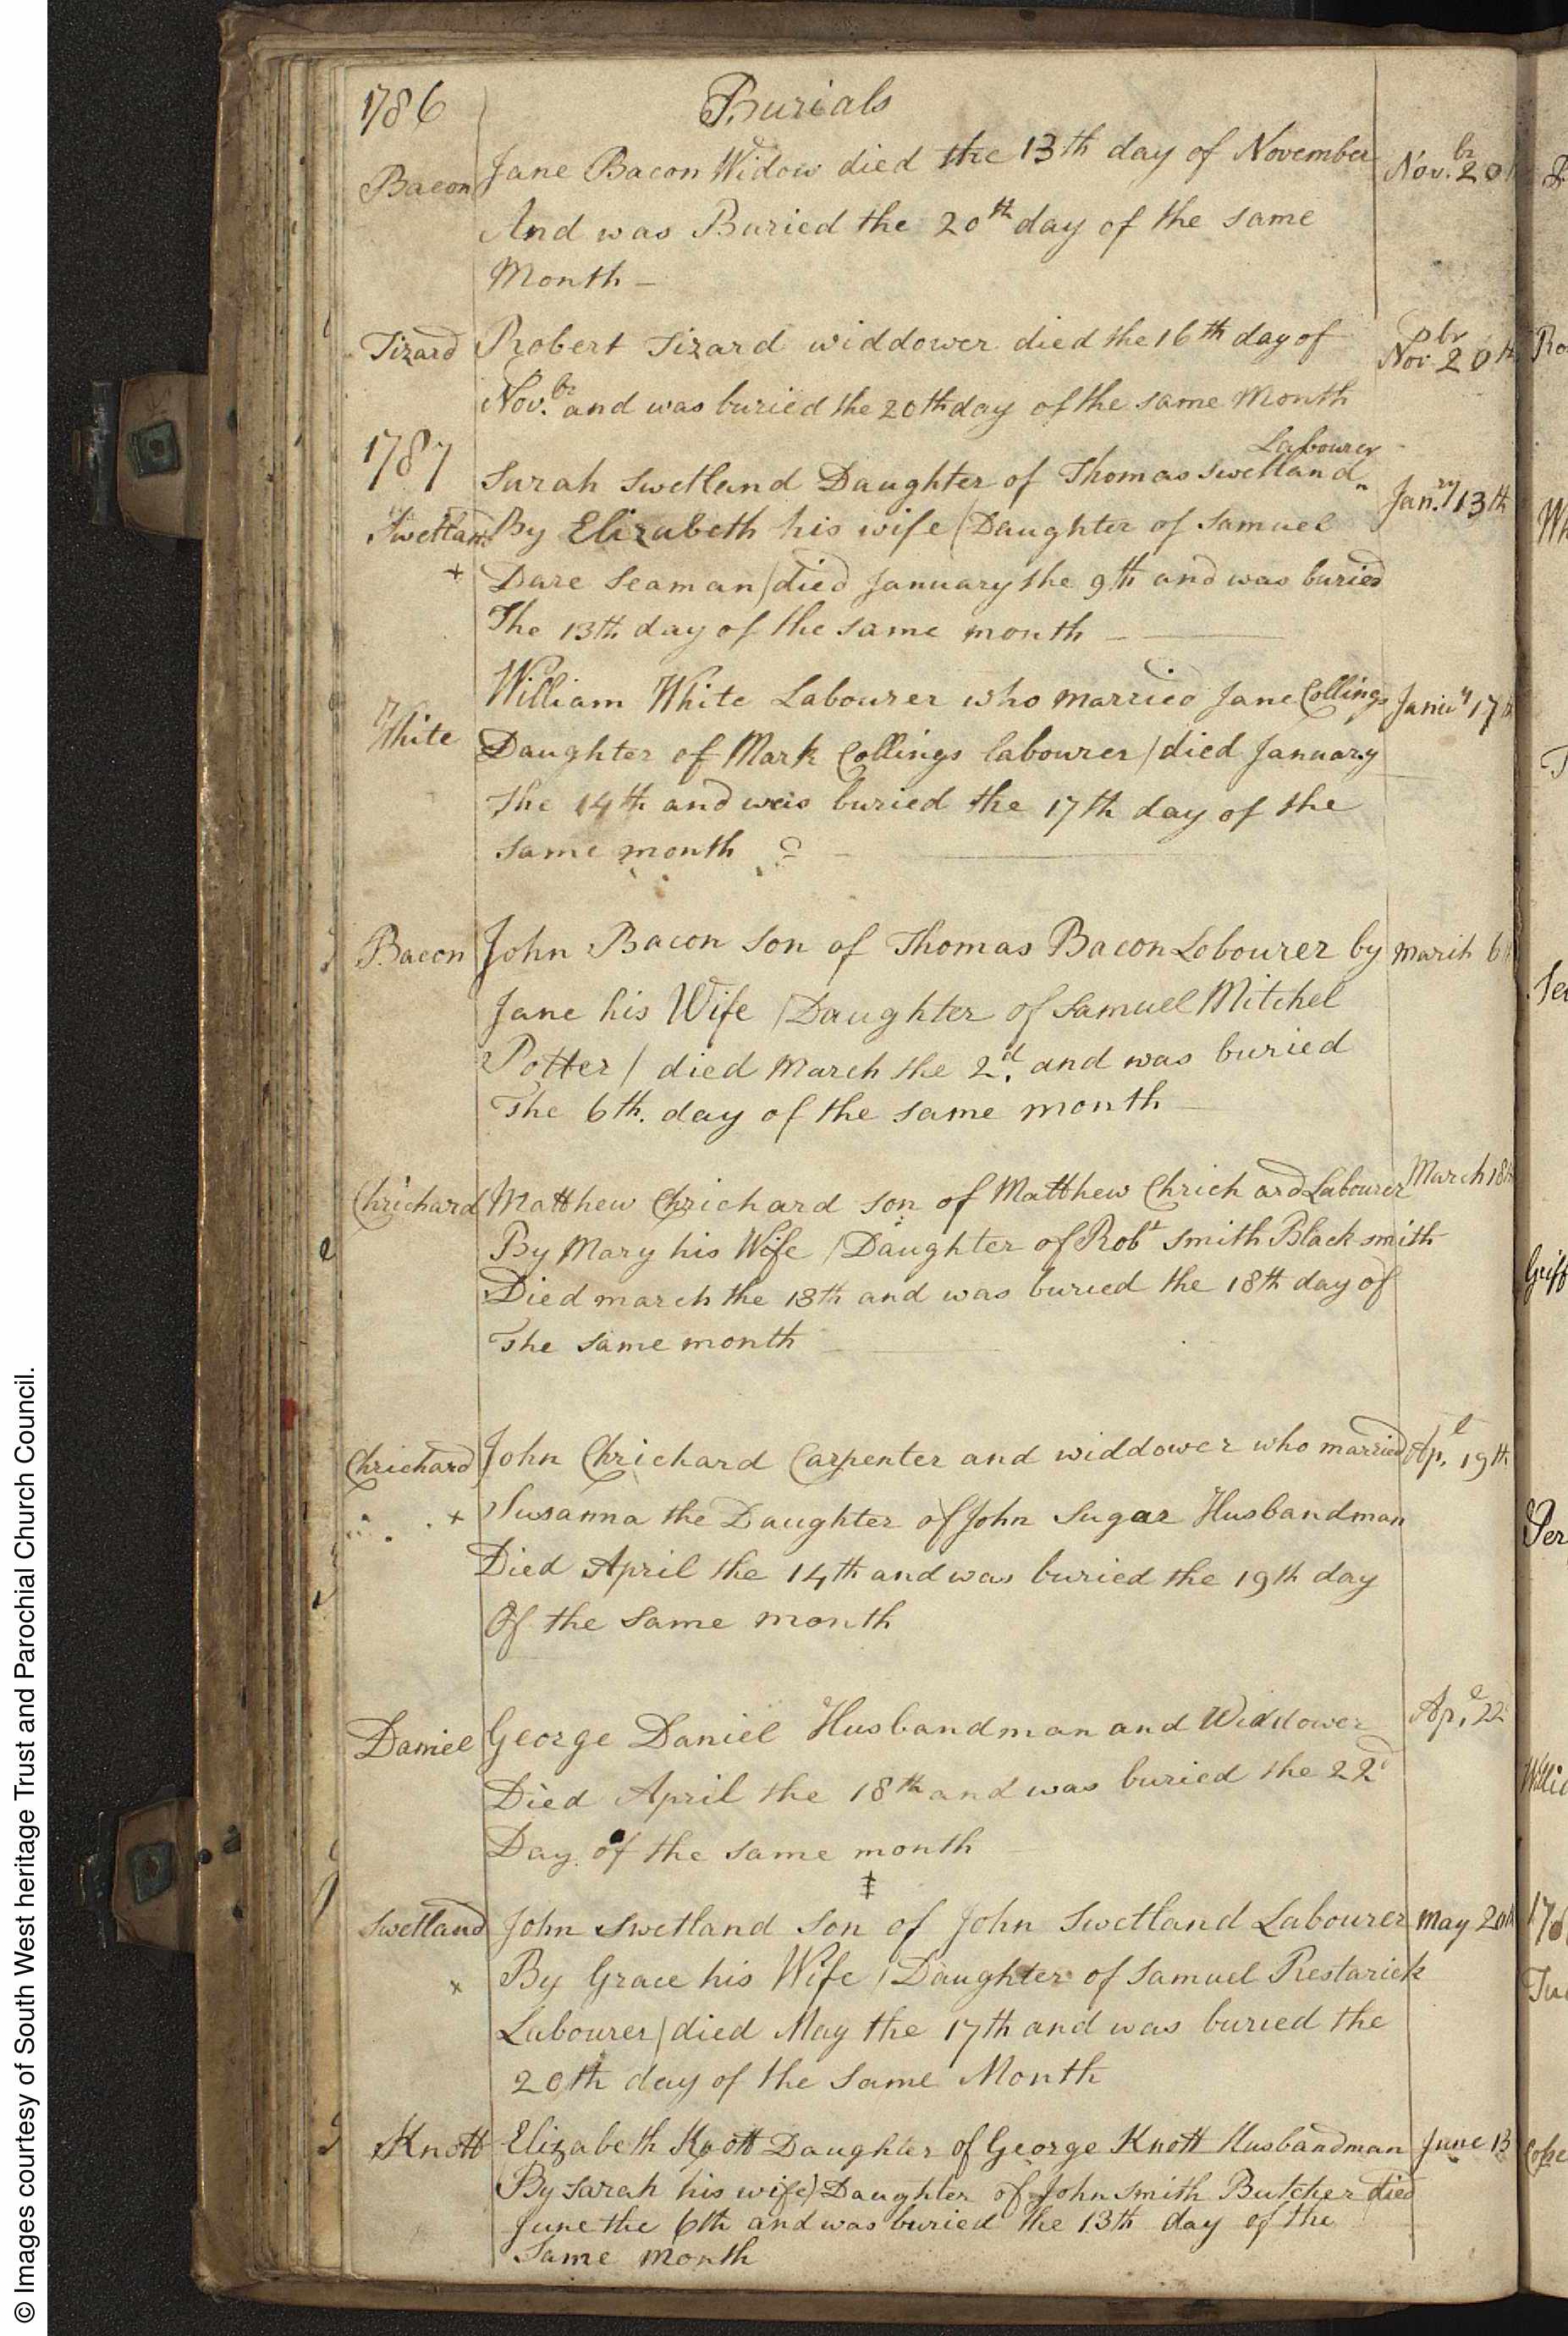 1786 Burials
Bacon Jane Bacon Widow died the 13th day of November Nov.br 20
And was Buried the 20th day of the same
Month —
Tizard Robert Tizard widdower died the 16th day of Novbr 20th
Nov.br and was buried the 20th day of the same Month
1787
Labourer
Sarah Swetland Daughter of Thomas Swetland Jan.ry 13th
Swetland By Elizabeth his wife / Daughter of Samuel
+ Dare Seaman / died January the 9th and was buried
The 13th day of the same month —
White William White Labourer who married Jane Collings Janu.y 17th
Daughter of Mark Collings labourer / died January
The 14th and was buried the 17th day of the
same month
Bacon John Bacon son of Thomas Bacon Lobourer by March 6th
Jane his Wife / Daughter of Samuel Mitchel
Potter / died March the 2.d and was buried
The 6th. day of the same month —
Chrichard Matthew Chrichard son of Matthew Chrichard Labourer March 18th
By Mary his Wife / Daughter of Robt Smith Black smith
Died march the 13th and was buried the 18th day of
The same month
Chrichard John Chrichard Carpenter and widdower who married Ap.l 19th
+ Susanna the Daughter of John Sugar Husbandman
Died April the 14th and was buried the 19th day
Of the same month
Daniel George Daniel Husbandman and Widdower Ap.l 22
Died April the 18th and was buried the 22d
Day of the same month
‡
Swetland John Swetland son of John Swetland Labourer May 20th
x By Grace his Wife / Daughter of Samuel Restarick
Labourer / died May the 17th and was buried the
20th day of the same Month
Knott Elizabeth Knott Daughter of George Knott Husbandman June 13
By Sarah his wife / Daughter of John Smith Butcher died
June the 6th and was buried the 13th day of the
Same month
© Images courtesy of South West heritage Trust and Parochial Church Council.